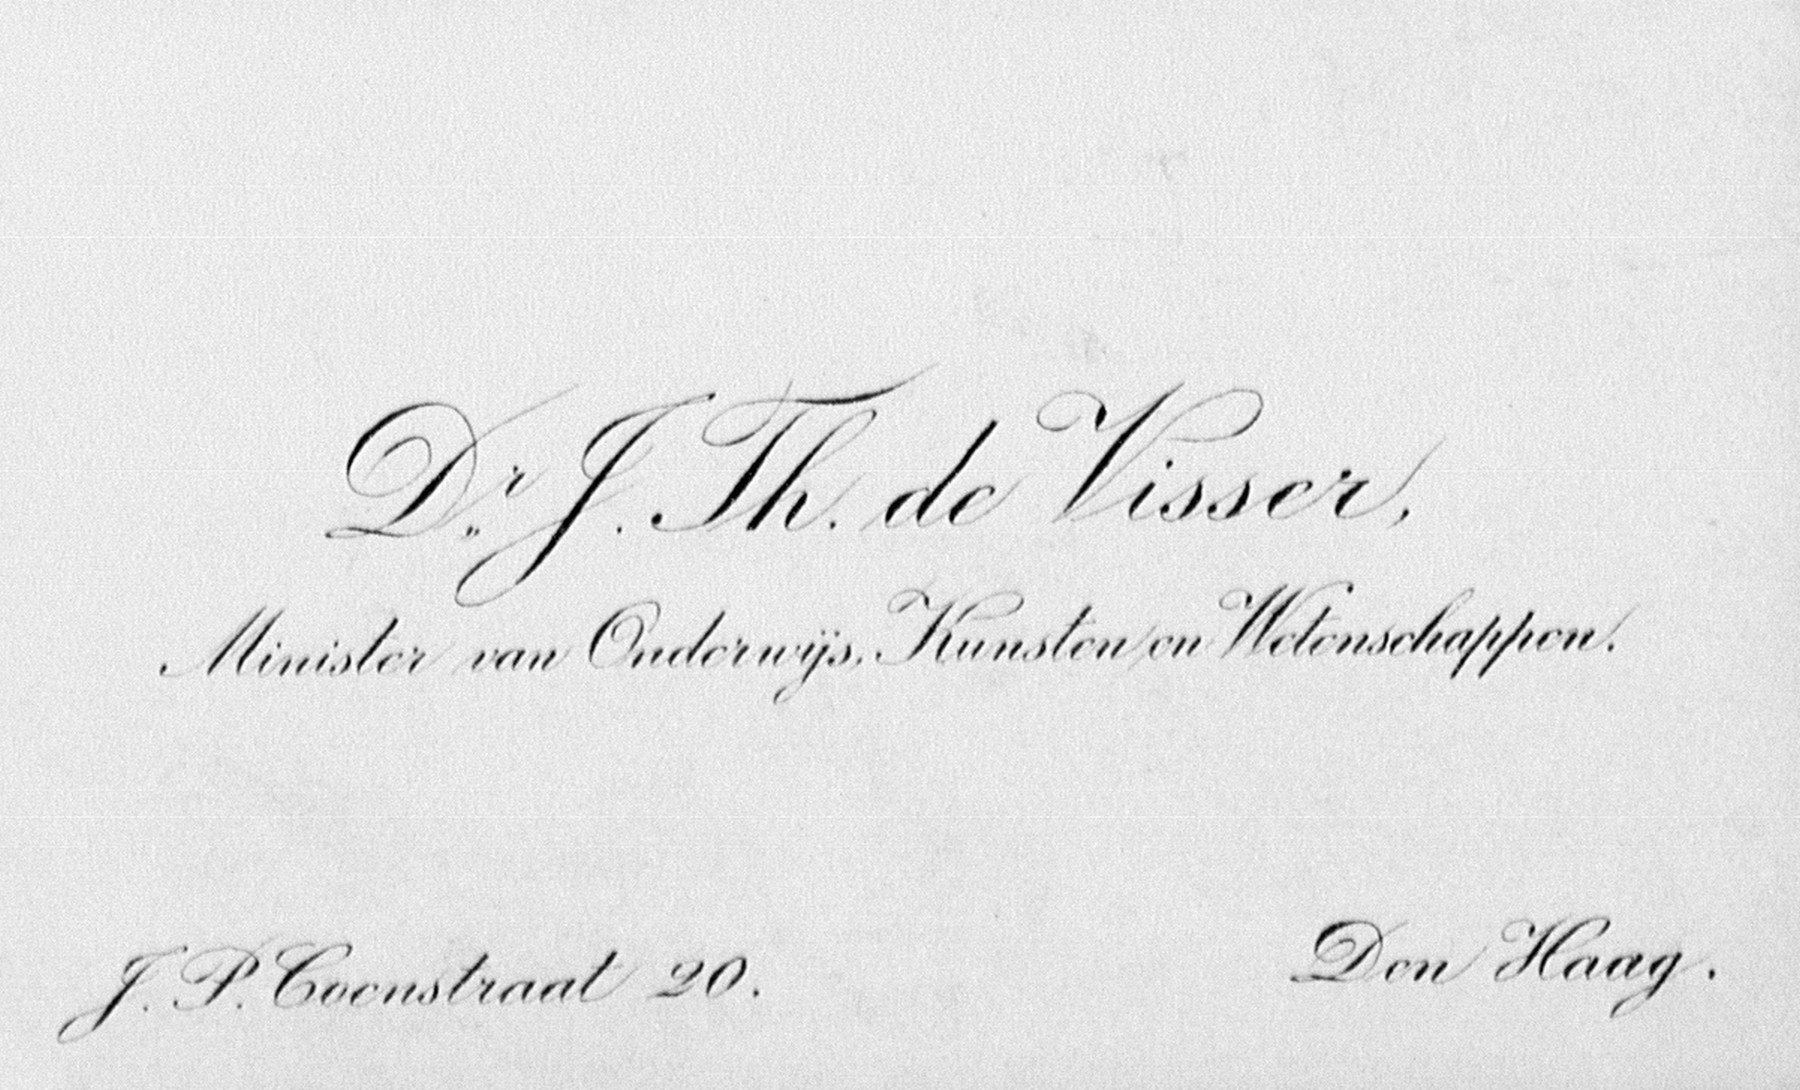 Dr. J. Th. de Visser,
Minister van Onderwijs, Kunsten en Wetenschappen.
J. P. Coenstraat 20.
Den Haag.